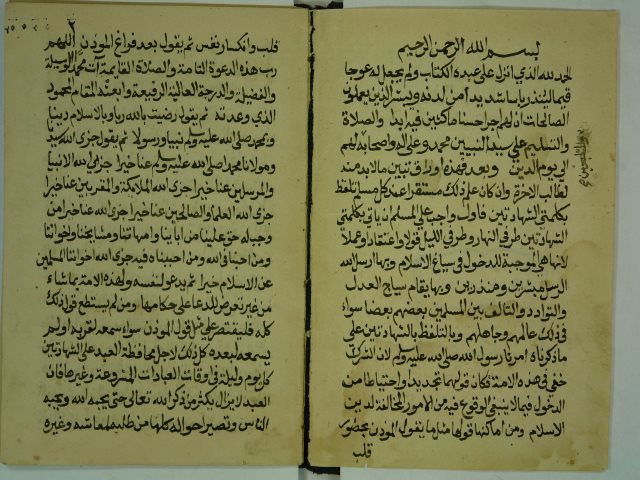 بسم الله الرحمن الرحيم
الحمد لله الذي انزل على عبده الكتاب ولم يجعل له عوجا
قيما لينذر باسا شديدا من لدنه ويبشر الذين يعملون
الصالحات ان لهم اجرا حسنا ماكثين فيه ابدا والصلاة
والتسليم على سيد النبيين محمد وعلى اله واصحابه لهم
الى يوم الدين وبعد فهذه اوراق تبين ما لابد منه
لطالب الاخرة وان كان على ذلك مستقرا عند كل مسلم تلفظ
بكلمتي الشهادتين فاول واجب على المسلم ان ياتي بكلمتي
الشهادتين طرفي النهار وطرفي الليل قولا واعتقادا وعملا
لانها هي الموجبة للدخول في سياج الاسلام وبها ارسل الله
الرسل مبشرين ومنذرين وبها يقام سياج العدل
والتوادد والتالف بين المسلمين بعضهم بعضا سواء
في ذلك عالمهم وجاهلهم وبالتلفظ بالشهادتين على
ما ذكرناه امرنا رسول الله صلى الله عليه وسلم لان الشرك
خفي في هذه الامة فكان قولها تجديدا واحتياطا من
الدخول فيما لا ينبغي الوقوع فيه من الامور المخالفة لدين
الاسلام ومن اماكنها قولها مثل ما يقول الموذن بحضور
قلب
قلب وانكسار نفس ثم يقول بعد فراغ الموذن اللهم
رب هذه الدعوة التامة والصلاة القايمة آت محمدا الوسيلة
والفضيلة والدرجة العالية الرفيعة وابعثه المقام المحمود
الذي وعدته ثم يقول رضيت بالله ربا وبالاسلام دينا
وبمحمد صلى الله عليه وسلم نبيا ورسولا ثم يقول جزى الله سيدنا
ومولانا محمدا صلى الله عليه وسلم عنا خيرا جزى الله الانبيا
والمرسلين عنا خيرا جزى الله الملائكة والمقربين عنا خيرا
جزى الله العلما والصالحين عنا خيرا جزى الله عنا خيرا من
وجب له حق علينا من ابائنا وامهاتنا ومشايخنا واخواننا
ومن احبنا في الله ومن احببناه فيه جزى الله اخواننا المسلمين
عن الاسلام خيرا ثم يدعو لنفسه ولهذه الامة بما شاء
من غير تعرض للدعا على حكامها ومن لم يستطع قول ذلك
كله فليقتصر على مثل قول الموذن سواء سمعه لقربه او لم
يسمعه لبعده كل ذلك لاجل محافظة العبد على الشهادتين
كل يوم وليلة في اوقات العبادات المشروعة وغيرها فان
العبد لا يزال يكثر من ذكر الله تعالى حتى يحبه الله ويحبه
الناس وتصير احواله كلها من طلبه لمعاشه وغيره